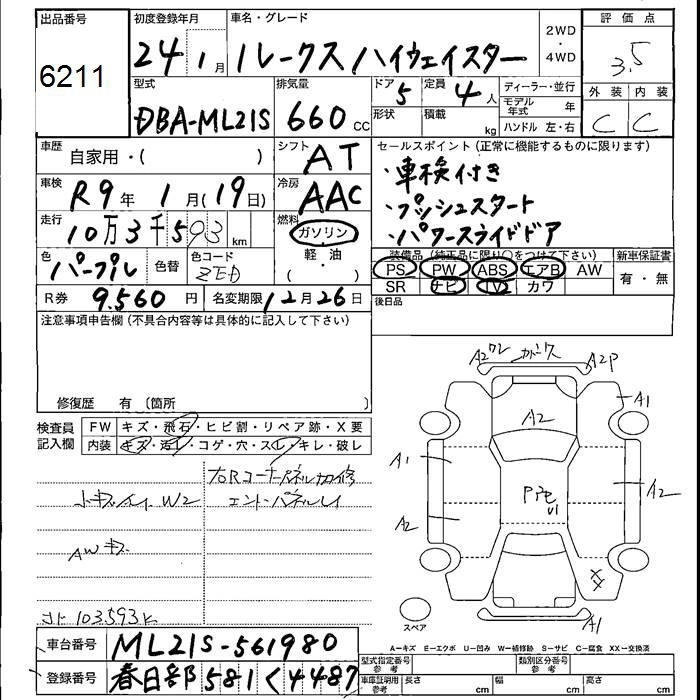 出品番号
6211
初度登録年月
24年1月
車名・グレード
ルークス ハイウェイスター
2WD
・
4WD
評価点
3.5
外装 内装
C C
型式
DBA-ML21S
排気量
660 CC
ドア
5
定員
4 人
形状
積載
kg
ディーラー・並行
モデル年式 年
ハンドル 左・右
車歴
自家用・( )
シフト
AT
セールスポイント(正常に機能するものに限ります)
・車検付き
・プッシュスタート
・パワースライドドア
車検
R9年 1月(19日)
冷房
AAC
走行
10万3千593km
燃料
ガソリン
軽油
( ・ )
色
パープル
色替
色コード
ZED
装備品(純正品に限り○をつけて下さい)
PS PW ABS エアB AW
SR ナビ TV カワ
新車保証書
有・無
R券 9.560円
名変期限 12月26日
後日品
注意事項申告欄(不具合内容等は具体的に記入して下さい)
修復歴 有〔箇所 〕
検査員記入欄
FW キズ・飛石・ヒビ割・リペア跡・X要
内装 キズ・汚レ・コゲ・穴・スレ・キレ・破レ
右Rコーナーパネル切修
エンドパネル
W2
AWキズ
103593K
A2 A2P
A1
A2
A1
A2
A2
XX
A1
スペア
A=キズ E=エクボ U=凹み W=補修跡 S=サビ C=腐食 XX=交換済
車台番号 ML21S-561980
登録番号 春日部581く4487
型式指定番号 参考
類別区分番号 参考
車庫証明用 参考 長さ cm 幅 cm 高さ cm